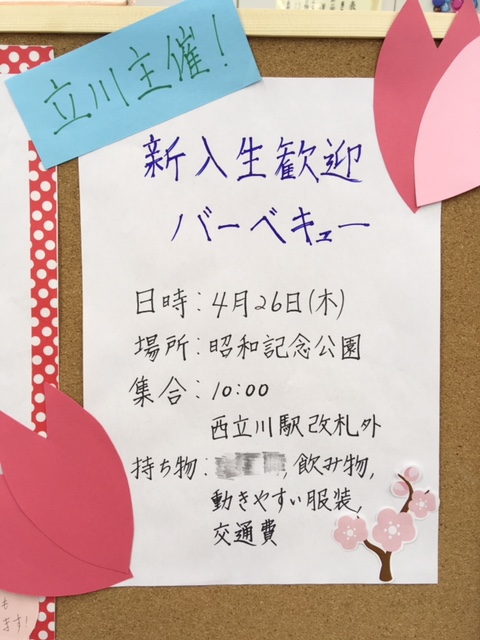 立川主催!
新入生歓迎
バーベキュー
日時:4月26日(木)
場所:昭和記念公園
集合:10:00
西立川駅改札外
持ち物: , 飲み物,
動きやすい服装,
交通費
も
ます!